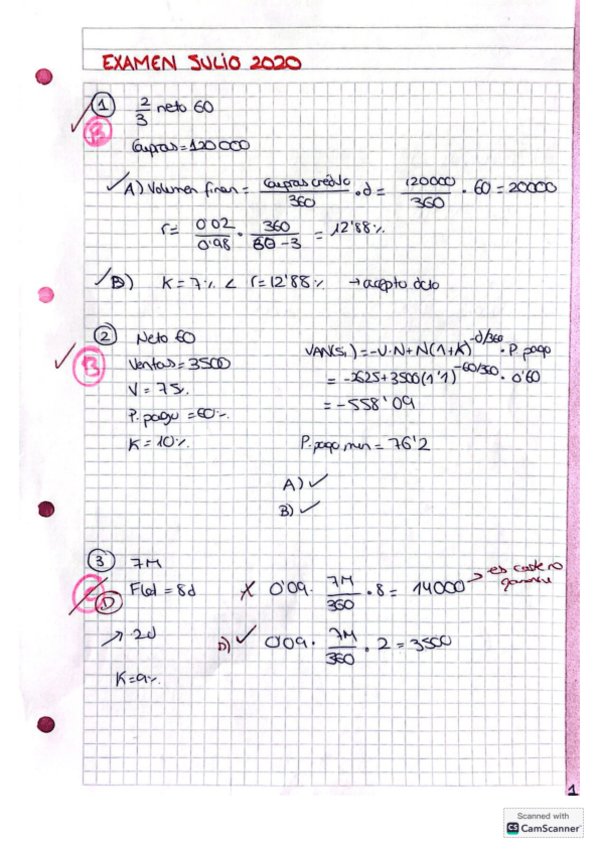 EXAMEN JULIO 2020
1 2/3 neto 60
B
Compras = 120000
A) Volumen finan = Compras crédito/360 · d = 120000/360 · 60 = 20000
r = 0'02/0'98 · 360/60-3 = 12'88%
B) K = 7% < r = 12'88% → acepto dcto
2 Neto 60
B
Ventas = 3500
V = 75%
P. pago = 60%
K = 10%
VAN(S1) = -V·N + N(1+K)^-d/360 · P. pago
= -2625 + 3500(1'1)^-60/360 · 0'60
= -558'09
P. pago min = 76'2
A) ✓
B) ✓
3 7M
D
Flot = 8d
X 0'09 · 7M/360 · 8 = 14000 → es coste no
↗ 2d
D) ✓ 0'09 · 7M/360 · 2 = 3500
K = 9%
1
Scanned with
CS CamScanner